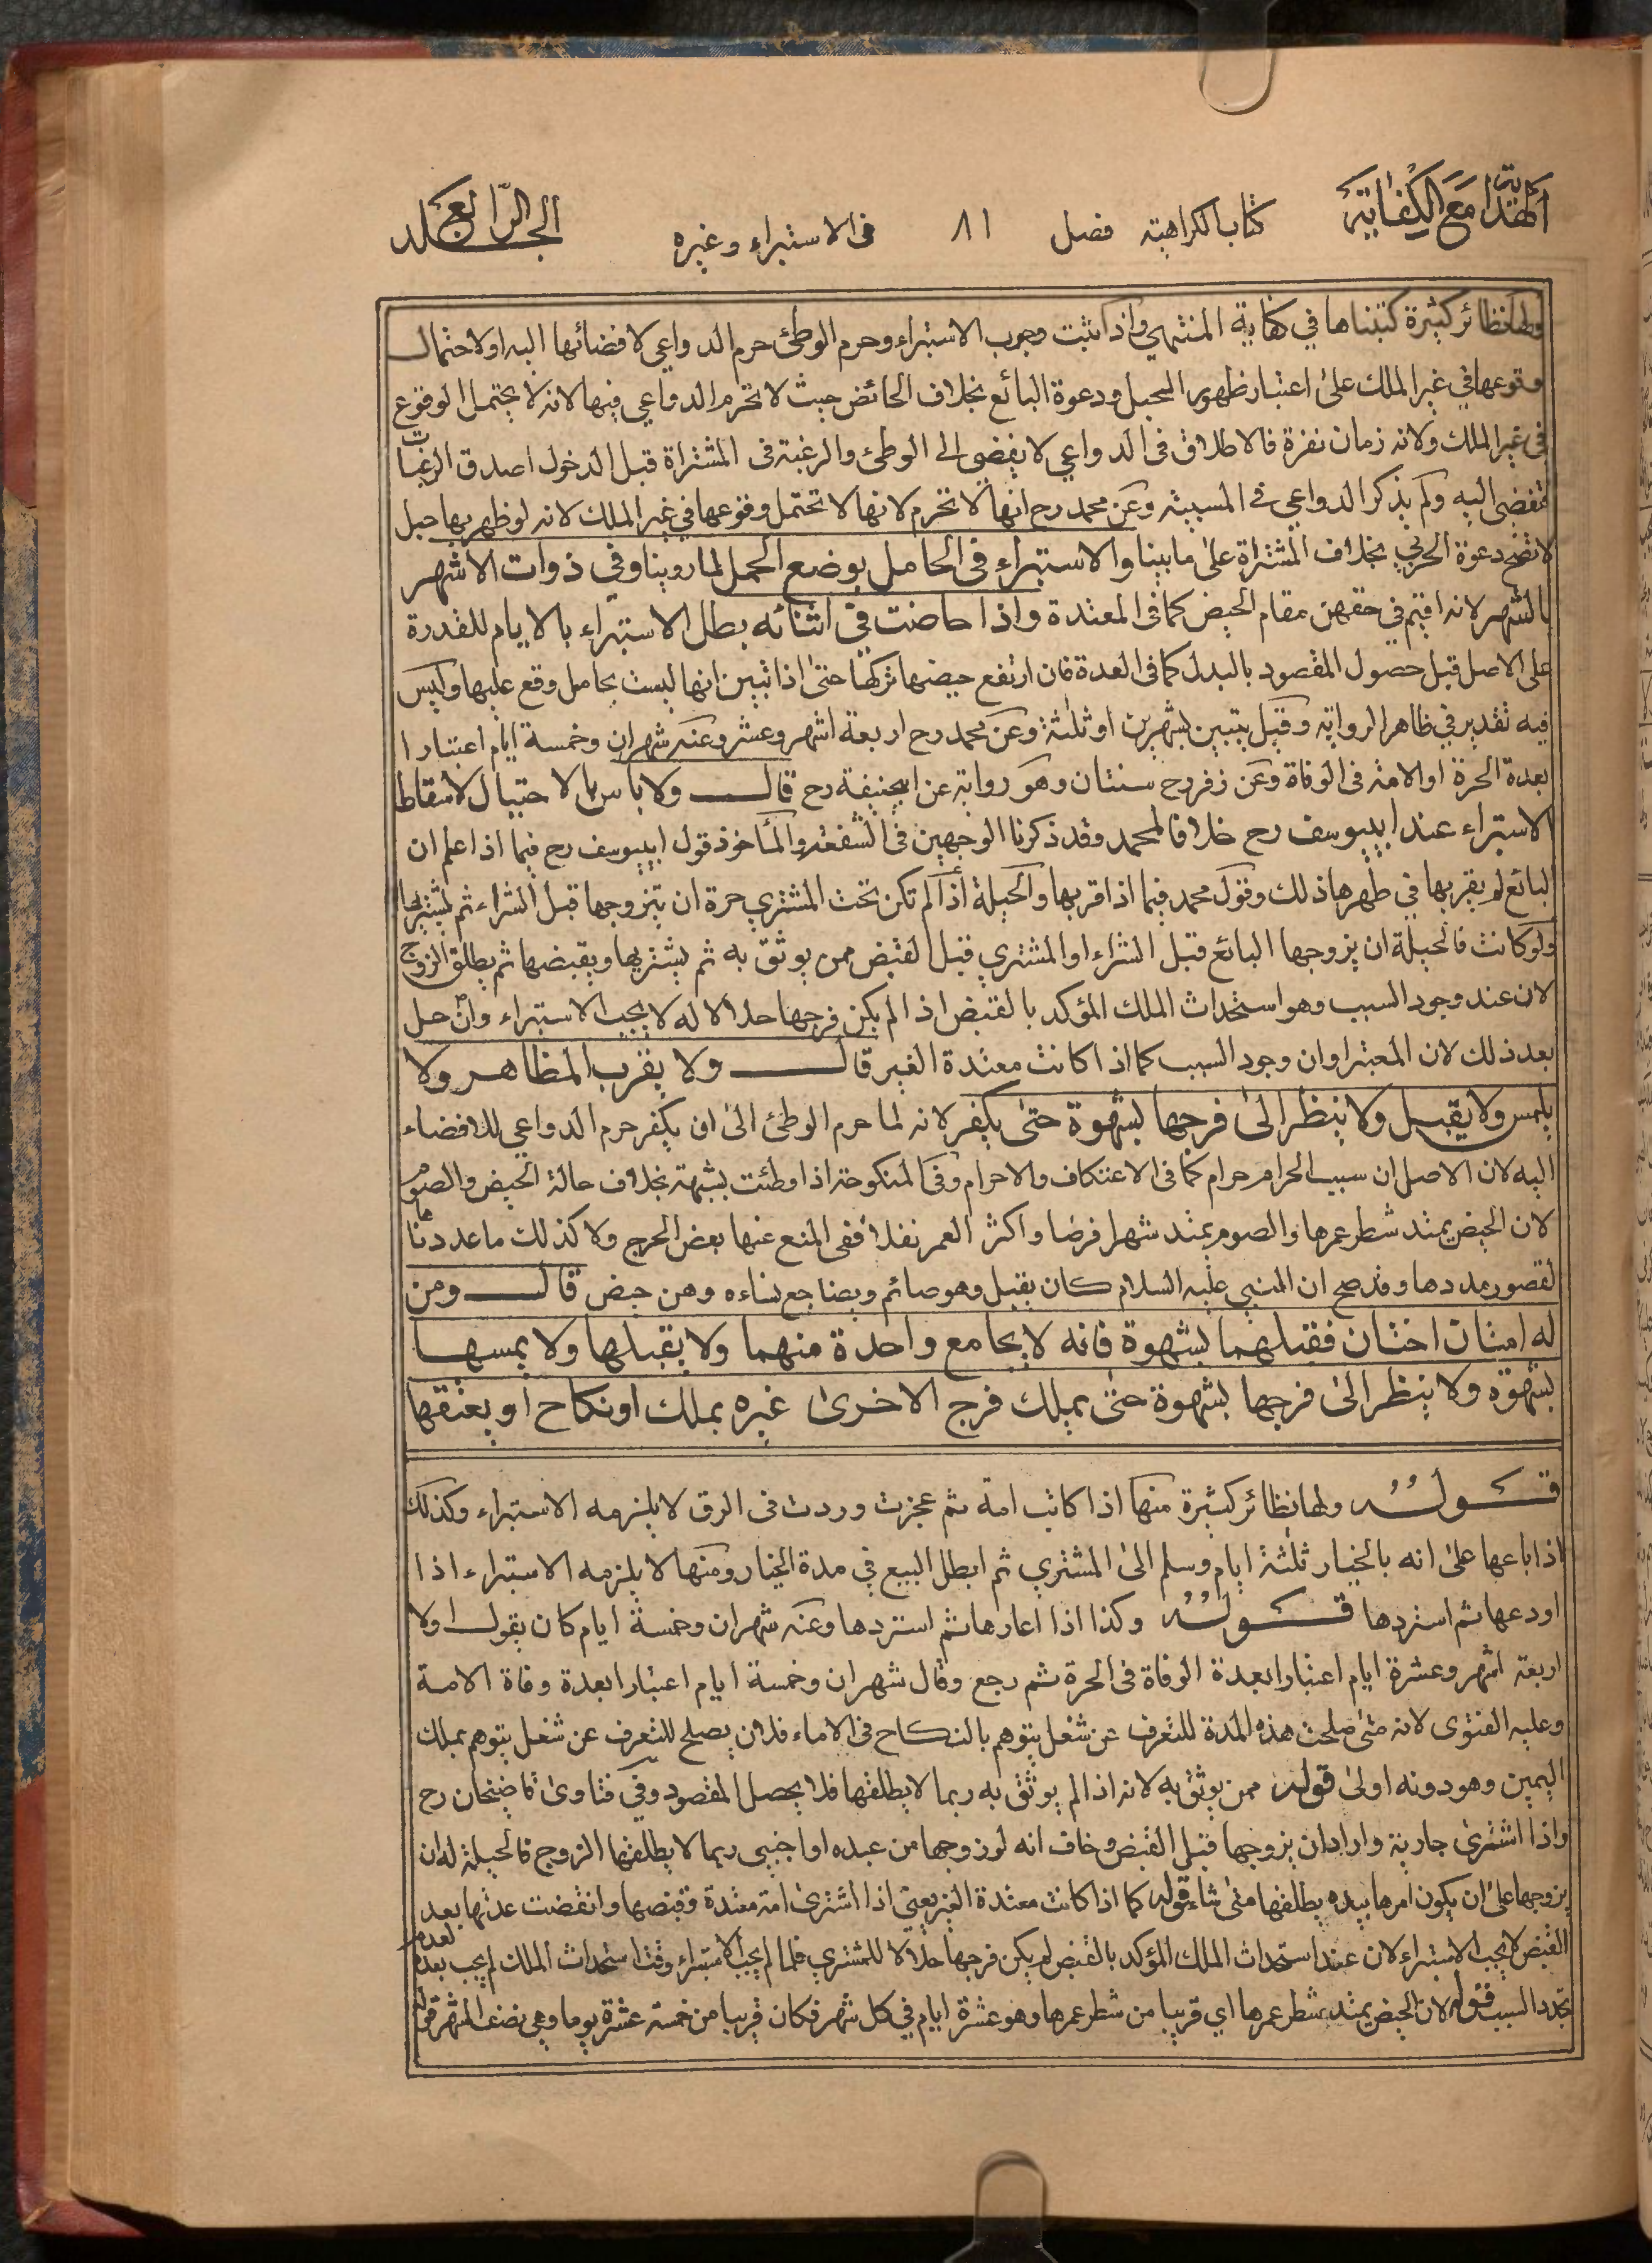 الهداية مع الكفاية كتاب الكراهية فصل ٨١ فى الاستبراء وغيره الجلد الرابع
ولها نظائر كثيرة كتبناها في كفاية المنتهي واذا ثبت وجوب الاستبراء وحرم الوطئ حرم الدواعي لافضائها اليه او لاحتمال
وقوعها في غير الملك على اعتبار ظهور الحبل ودعوة البائع بخلاف الحائض حيث لا تحرم الدواعي فيها لانه لا يحتمل الوقوع
فى غير الملك ولانه زمان نفرة فالاطلاق فى الدواعي لا يفضي الى الوطئ والرغبة فى المشتراة قبل الدخول اصدق الرغبات
فتفضى اليه ولم يذكر الدواعي فى المسبية وعن محمد رح انها لا تحرم لانها لا تحتمل وقوعها في غير الملك لانه لو ظهر بها حبل
لا تصح دعوة الحربي بخلاف المشتراة على ما بينا والاستبراء فى الحامل بوضع الحمل لما روينا وفي ذوات الاشهر
بالشهر لانه اقيم في حقهن مقام الحيض كما فى المعتدة واذا حاضت في اثنائه بطل الاستبراء بالايام للقدرة
على الاصل قبل حصول المقصود بالبدل كما فى العدة فان ارتفع حيضها تركها حتى اذا تبين انها ليست بحامل وقع عليها وليس
فيه تقدير في ظاهر الرواية وقيل يتبين بشهرين او ثلثة وعن محمد رح اربعة اشهر وعشر وعنه شهران وخمسة ايام اعتبارا
بعدة الحرة او الامة فى الوفاة وعن زفر رح سنتان وهو رواية عن ابيحنيفة رح قال ولا باس بالاحتيال لاسقاط
الاستبراء عند ابييوسف رح خلافا لمحمد وقد ذكرنا الوجهين فى الشفعة والمأخوذ قول ابييوسف رح فيما اذا علم ان
البائع لم يقربها في طهرها ذلك وقول محمد فيما اذا قربها والحيلة اذا لم تكن تحت المشتري حرة ان يتزوجها قبل الشراء ثم يشتريها
ولو كانت فالحيلة ان يزوجها البائع قبل الشراء او المشتري قبل القبض ممن يوثق به ثم يشتريها ويقبضها ثم يطلق الزوج
لان عند وجود السبب وهو استحداث الملك المؤكد بالقبض اذا لم يكن فرجها حلالا له لا يجب الاستبراء وان حل
بعد ذلك لان المعتبر اوان وجود السبب كما اذا كانت معتدة الغير قال ولا يقرب المظاهر ولا
يلمس ولا يقبل ولا ينظر الى فرجها بشهوة حتى يكفر لانه لما حرم الوطئ الى ان يكفر حرم الدواعي للافضاء
اليه لان الاصل ان سبب الحرام حرام كما فى الاعتكاف والاحرام وفى المنكوحة اذا وطئت بشبهة بخلاف حالة الحيض والصوم
لان الحيض يمتد شطر عمرها والصوم يمتد شهرا فرضا واكثر العمر نفلا ففى المنع عنها بعض الحرج ولا كذلك ما عددناها
لقصور مددها وقد صح ان النبي عليه السلام كان يقبل وهو صائم ويضاجع نساءه وهن حيض قال ومن
له امتان اختان فقبلهما بشهوة فانه لا يجامع واحدة منهما ولا يقبلها ولا يمسها
بشهوة ولا ينظر الى فرجها بشهوة حتى يملك فرج الاخرى غيره بملك او نكاح او يعتقها
قوله ولها نظائر كثيرة منها اذا كاتب امة ثم عجزت وردت فى الرق لا يلزمه الاستبراء وكذلك
اذا باعها على انه بالخيار ثلثة ايام وسلم الى المشتري ثم ابطل البيع في مدة الخيار ومنها لا يلزمه الاستبراء اذا
اودعها ثم استردها قوله وكذا اذا اعارها ثم استردها وعنه شهران وخمسة ايام كان يقول اولا
اربعة اشهر وعشرة ايام اعتبارا بعدة الوفاة فى الحرة ثم رجع وقال شهران وخمسة ايام اعتبارا بعدة وفاة الامة
وعليه الفتوى لانه متى صلحت هذه المدة للتعرف عن شغل يتوهم بالنكاح فى الاماء فلان يصلح للتعرف عن شغل يتوهم بملك
اليمين وهو دونه اولى قوله ممن يوثق به لانه اذا لم يوثق به ربما لا يطلقها فلا يحصل المقصود وفي فتاوى قاضيخان رح
واذا اشترى جارية واراد ان يزوجها قبل القبض وخاف انه لو زوجها من عبده او اجنبي ربما لا يطلقها الزوج فالحيلة له ان
يزوجها على ان يكون امرها بيده يطلقها متى شاء قوله كما اذا كانت معتدة الغير يعني اذا اشترى امة معتدة وقبضها وانقضت عدتها بعد
القبض لا يجب الاستبراء لان عند استحداث الملك المؤكد بالقبض لم يكن فرجها حلالا للمشتري فلما لم يجب الاستبراء وقت استحداث الملك لم يجب بعده لعدم
تجدد السبب قوله لان الحيض يمتد شطر عمرها اي قريبا من شطر عمرها وهو عشرة ايام في كل شهر فكان قريبا من خمسة عشر يوما وهي نصف الشهر قوله